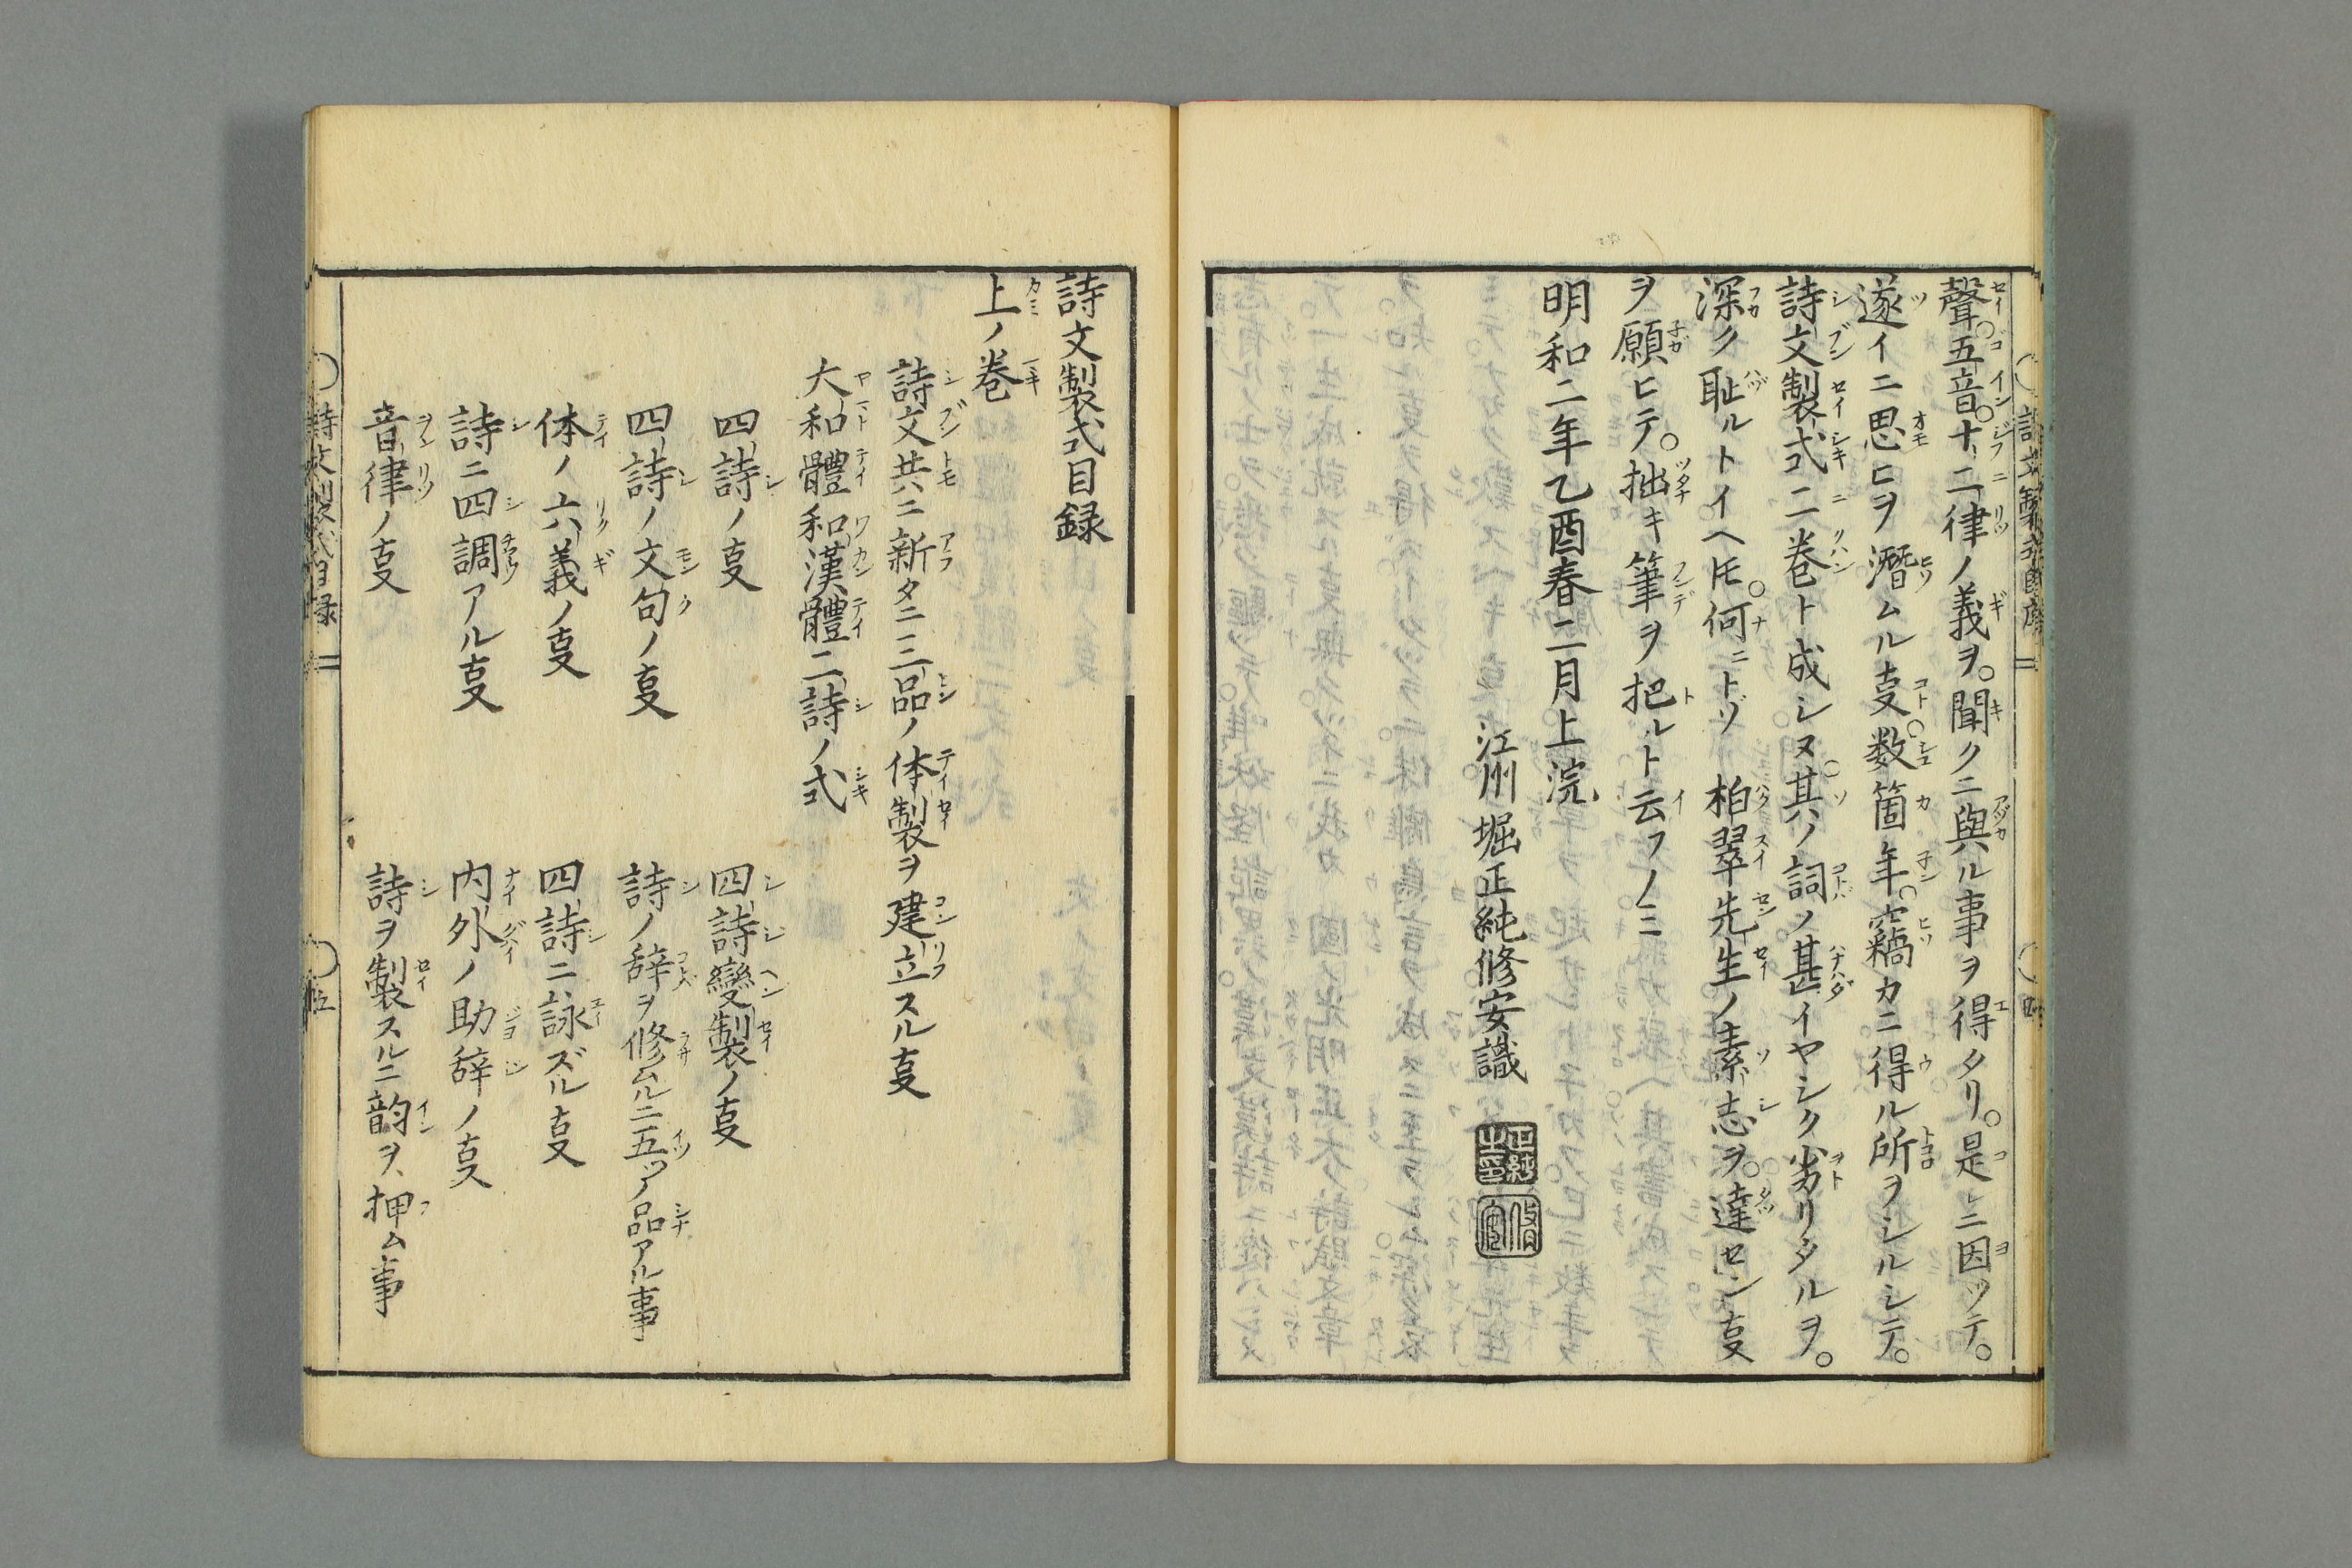 聲。五音。十二律ノ義ヲ。聞クニ與ル事ヲ得タリ。是ニ因ッテ。
遂イニ思ヒヲ潛ムル叓。数箇年。竊カニ得ル所ヲシルシテ。
詩文製式二卷ト成シヌ。其ノ詞ノ甚イヤシク劣リタルヲ。
深ク耻ルトイヘ𪜈。何ニトゾ 柏翠先生ノ素志ヲ。達セン叓
ヲ願ヒテ。拙キ筆ヲ把ルト云フノミ
明和二年乙酉春二月上浣
江州堀正純修安識
正純之印
修安
詩文製式目録
上ノ卷
詩文共ニ新タニ三品ノ体製ヲ建立スル叓
大和體和漢體二詩ノ式
四詩ノ叓
四詩變製ノ叓
四詩ノ文句ノ叓
詩ノ辞ヲ修ムルニ五ツノ品アル事
体ノ六義ノ叓
四詩ニ詠ズル叓
詩ニ四調アル叓
内外ノ助辞ノ叓
音律ノ叓
詩ヲ製スルニ韵ヲ押ム事
詩文製式目録